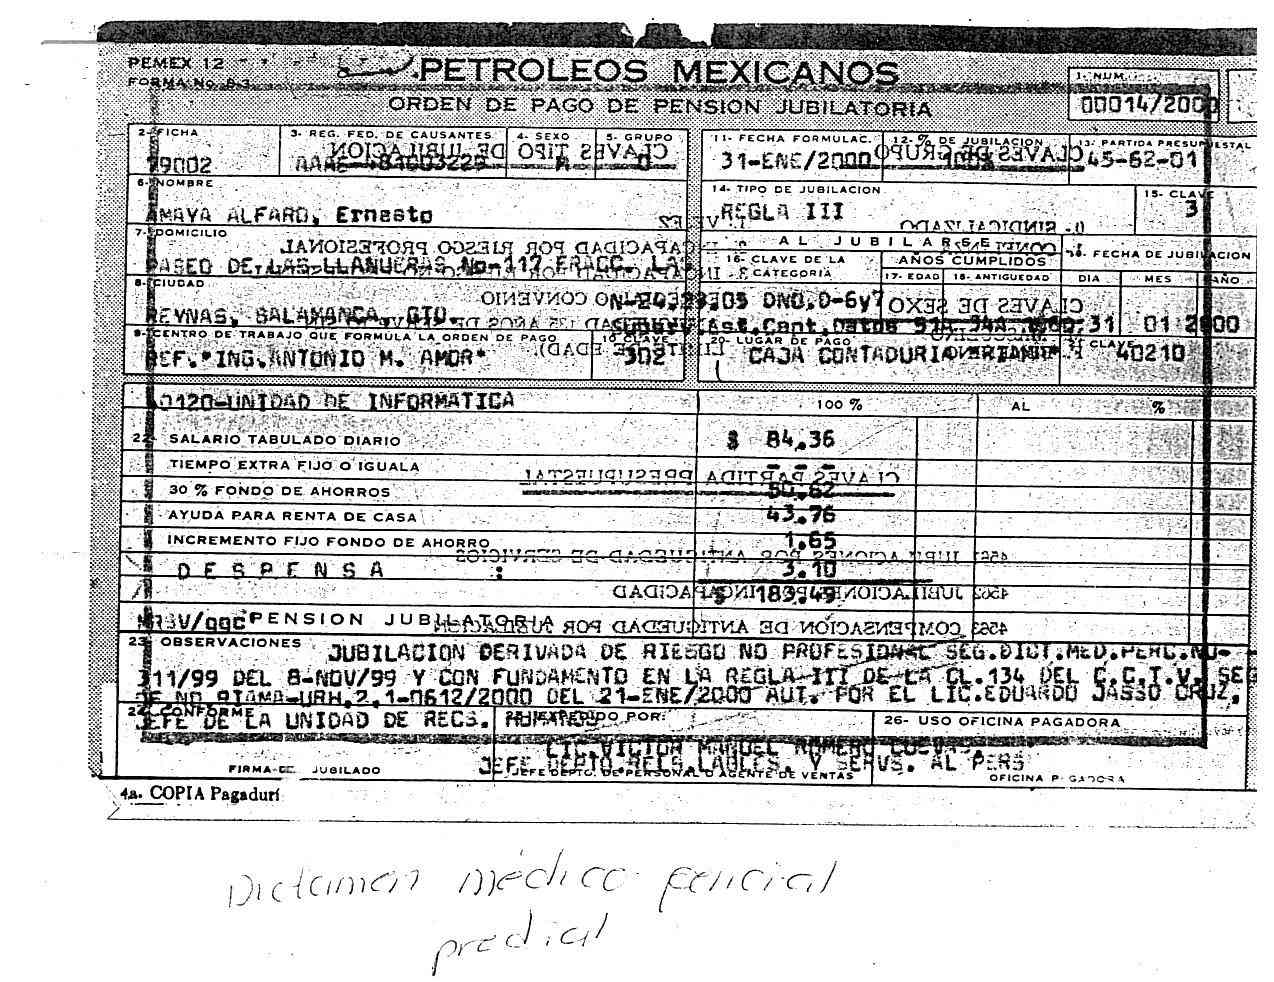 PEMEX 12
FORMA No. 8-3
PETROLEOS MEXICANOS
ORDEN DE PAGO DE PENSION JUBILATORIA
1- NUM.
00014/2000
2- FICHA
3- REG. FED. DE CAUSANTES
4- SEXO
5- GRUPO
11- FECHA FORMULAC.
12- % DE JUBILACION
13- PARTIDA PRESUPUESTAL
CLAVES TIPO DE JUBILACION
CLAVES DE GRUPO
31-ENE/2000
45-62-01
6- NOMBRE
14- TIPO DE JUBILACION
15- CLAVE
AMAYA ALFARO, Ernesto
REGLA III
3
0- SINDICALIZADO
7- DOMICILIO
INCAPACIDAD POR RIESGO PROFESIONAL
AL JUBILARSE
PASEO DE LAS LLANURAS No. 117 FRACC. LAS
16- CLAVE DE LA CATEGORIA
AÑOS CUMPLIDOS
17- EDAD
18- ANTIGUEDAD
19- FECHA DE JUBILACION
DIA MES AÑO
8- CIUDAD
CONVENIO
CLAVES DE SEXO
REYNAS, SALAMANCA, GTO.
31 01 2000
9- CENTRO DE TRABAJO QUE FORMULA LA ORDEN DE PAGO
10- CLAVE
20- LUGAR DE PAGO
21- CLAVE
REF. "ING. ANTONIO M. AMOR"
302
CAJA CONTADURIA
40210
UNIDAD DE INFORMATICA
100 %
AL %
22- SALARIO TABULADO DIARIO
$ 84.36
TIEMPO EXTRA FIJO O IGUALA
- - -
CLAVES PARTIDA PRESUPUESTAL
30 % FONDO DE AHORROS
50.62
AYUDA PARA RENTA DE CASA
43.76
INCREMENTO FIJO FONDO DE AHORRO
1.65
4561 JUBILACIONES POR ANTIGUEDAD DE SERVICIOS
DESPENSA :
3.10
4562 JUBILACIONES POR INCAPACIDAD
$ 183.49
PENSION JUBILATORIA
4563 COMPENSACION DE ANTIGUEDAD POR JUBILACION
23- OBSERVACIONES
JUBILACION DERIVADA DE RIESGO NO PROFESIONAL SEG.DICT.MED.PERC.NU-
311/99 DEL 8-NOV/99 Y CON FUNDAMENTO EN LA REGLA III DE LA CL.134 DEL C.C.T.V. SEG
DEL 21-ENE/2000 AUT. POR EL LIC.EDUARDO JASSO CRUZ,
24- CONFORME
JEFE DE LA UNIDAD DE RECS. HUMANOS
EXPEDIDO POR:
26- USO OFICINA PAGADORA
LIC.VICTOR MANUEL ROMERO CUEVAS.
JEFE DEPTO RELS.LABLES. Y SERVS. AL PERS
FIRMA DE JUBILADO
JEFE DEPTO. DE PERSONAL O AGENTE DE VENTAS
OFICINA PAGADORA
4a. COPIA Pagadurí
Dictamen médico pericial
predial